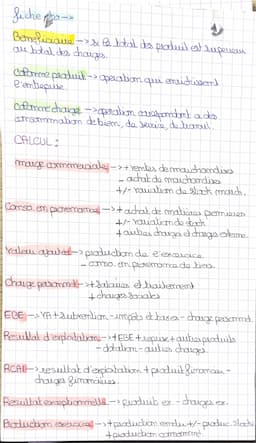 fiche
Bénéficiaire -> si le total des produit est supérieur
au total des charges.
Comme produit -> opération qui enrichissent
l'entreprise.
Comme charge -> opération correspondant a des
consommation de bien, de service, de travail.
CALCUL :
marge commerciale -> + ventes de marchandises
- achat de marchandises
+/- variation de stock march.
Conso. en provenance -> + achat de matières premieres
+/- variation de stock
+ autres charges et charges externe.
Valeur ajoutée -> production de l'exercice
- conso. en provenance de tiers.
Charge personnel -> + Salaires et traitement
+ charges sociales
EBE -> VA + subvention - impôts et taxes - charge personnel.
Resultat d'exploitation -> + EBE + reprise + autres produits
- dotation - autres charges.
RCAI -> resultat d'exploitation + produit financier -
charges financières.
Resultat exceptionnelle -> produits ex - charges ex.
Production exercice -> + production vendu +/- produc. stock
+ production